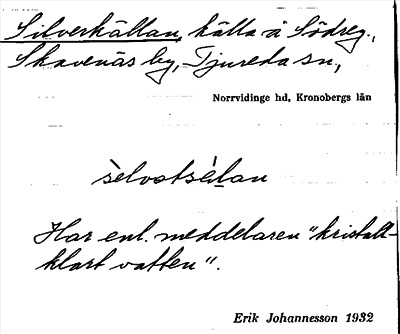 Silverkällan, källa å Södreg.,
Skavenäs by, Tjureda sn,
Norrvidinge hd, Kronobergs län
Har enl. meddelaren "kristall-
klart vatten".
Erik Johannesson 1932